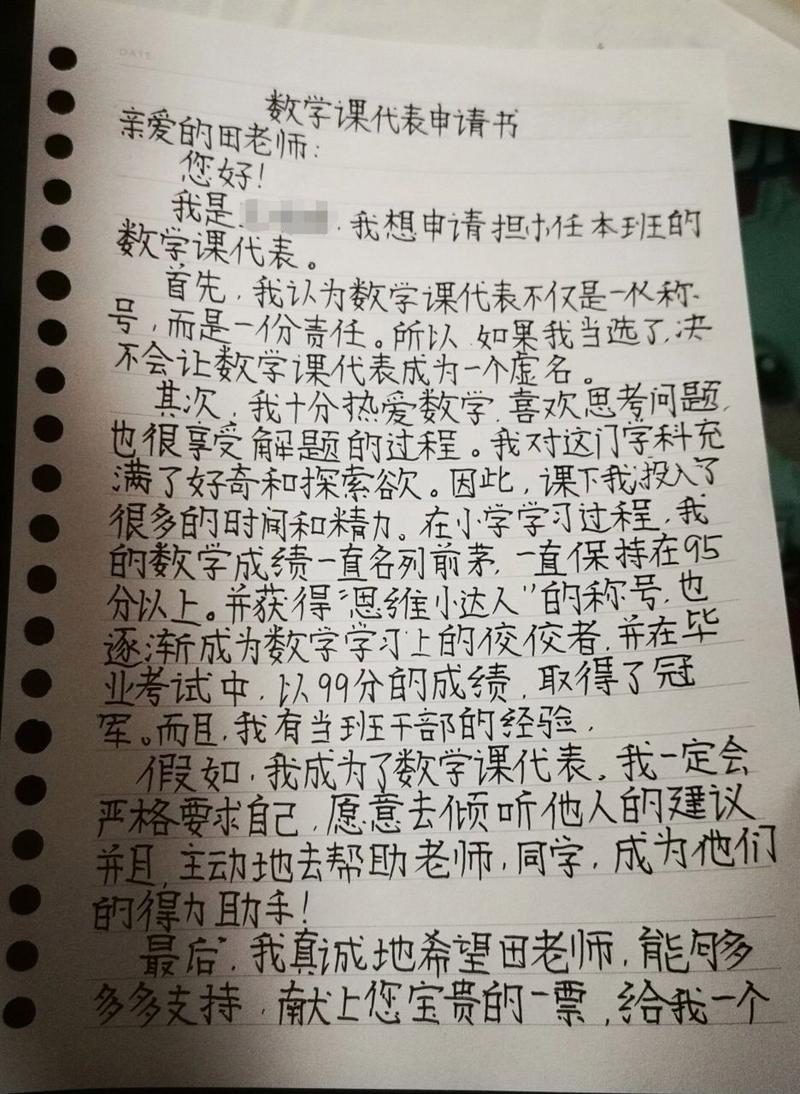 DATE
数学课代表申请书
亲爱的田老师:
您好!
我是 . 我想申请担任本班的
数学课代表。
首先,我认为数学课代表不仅是一个称
号,而是一份责任。所以,如果我当选了,决
不会让数学课代表成为一个虚名。
其次,我十分热爱数学,喜欢思考问题,
也很享受解题的过程。我对这门学科充
满了好奇和探索欲。因此,课下我投入了
很多的时间和精力。在小学学习过程,我
的数学成绩一直名列前茅,一直保持在95
分以上。并获得“思维小达人”的称号,也
逐渐成为数学学习上的佼佼者,并在毕
业考试中,以99分的成绩,取得了冠
军。而且,我有当班干部的经验,
假如,我成为了数学课代表。我一定会
严格要求自己,愿意去倾听他人的建议
并且,主动地去帮助老师,同学,成为他们
的得力助手!
最后,我真诚地希望田老师,能够多
多多支持,献上您宝贵的一票,给我一个